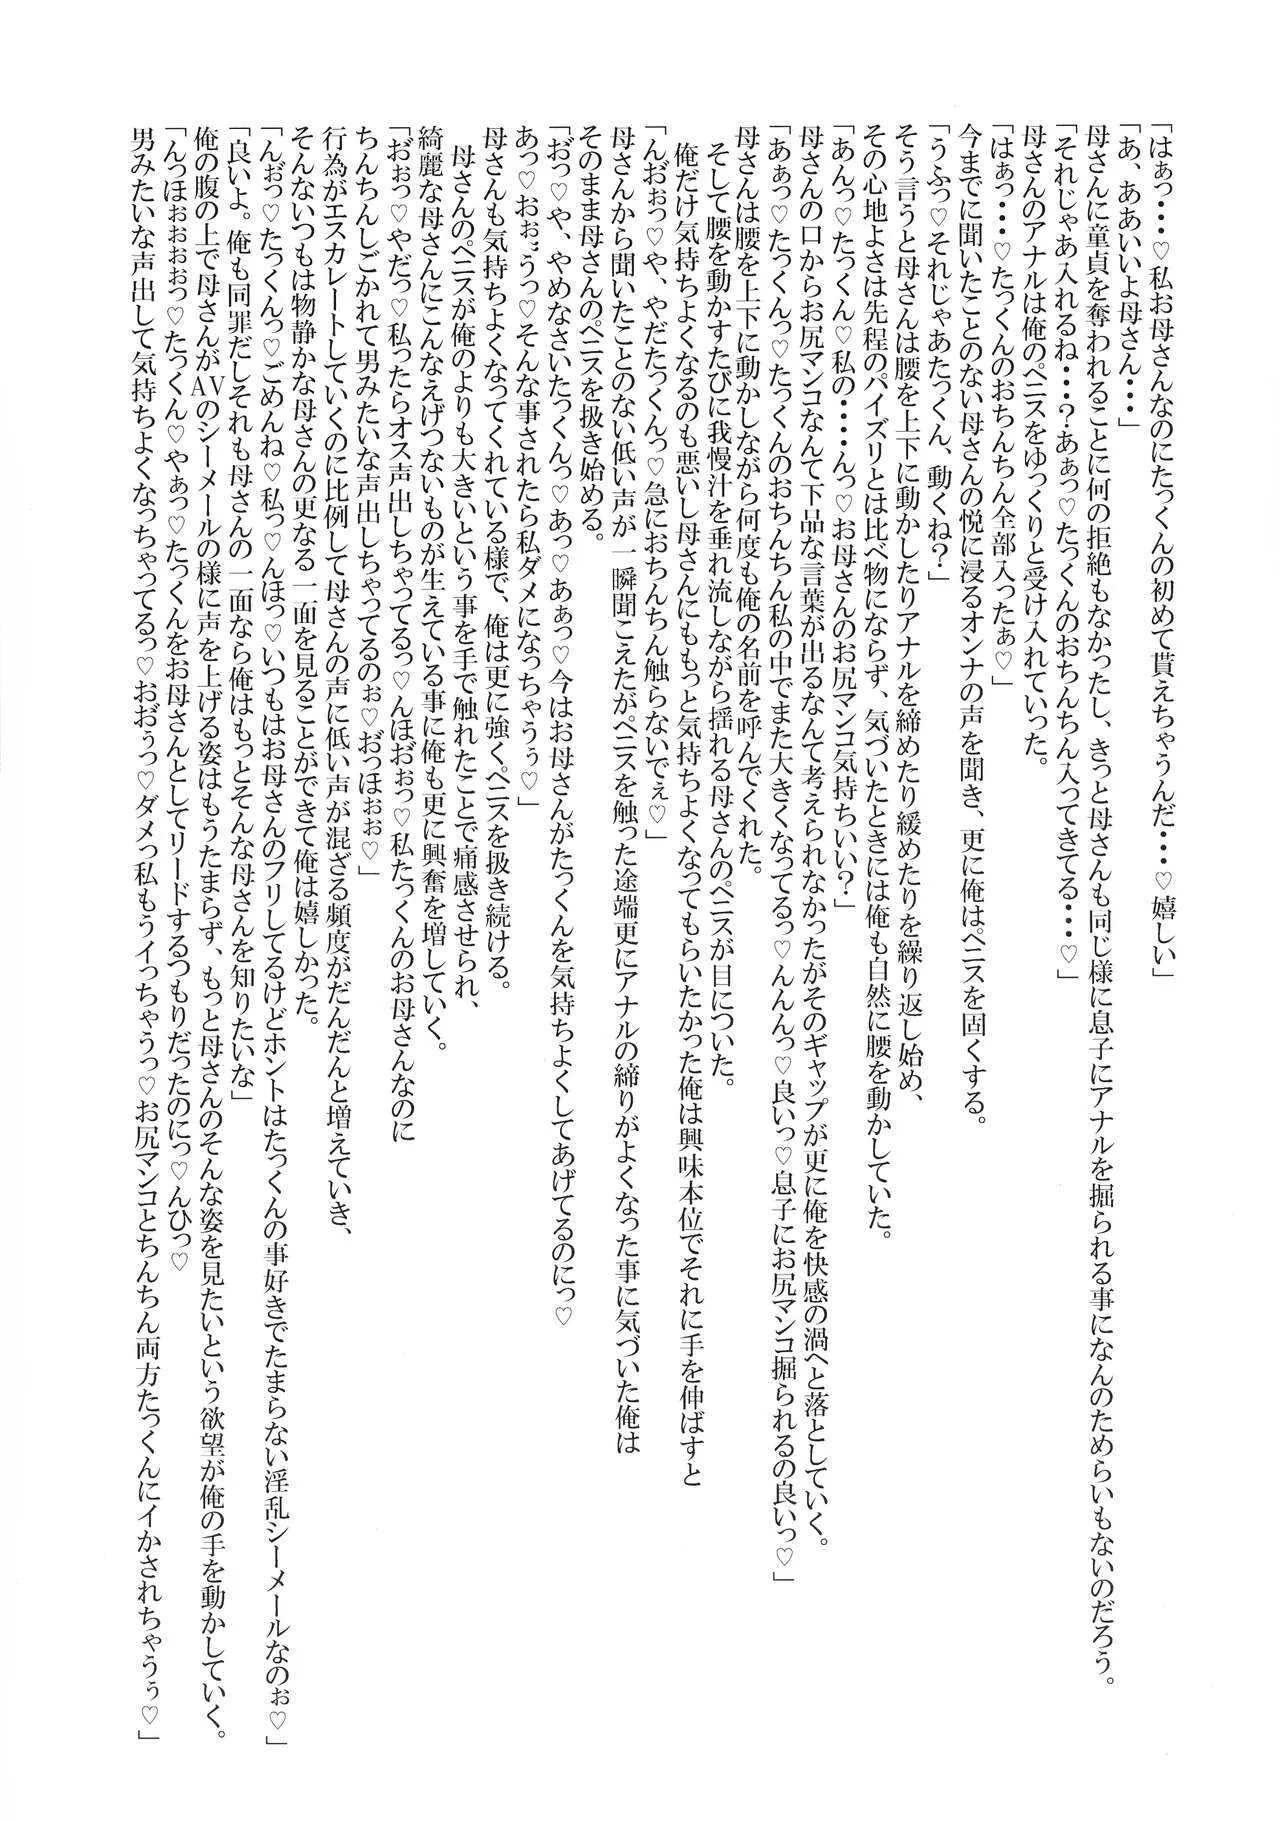 「はぁっ・・・♡私お母さんなのにたっくんの初めて貰えちゃうんだ・・・♡嬉しい」
「あ、ああいいよ母さん・・・」
母さんに童貞を奪われることに何の拒絶もなかったし、きっと母さんも同じ様に息子にアナルを掘られる事になんのためらいもないのだろう。
「それじゃあ入れるね・・・？あぁっ♡たっくんのおちんちん入ってきてる・・・♡」
母さんのアナルは俺のペニスをゆっくりと受け入れていった。
「はぁっ・・・♡たっくんのおちんちん全部入ったぁ♡」
今までに聞いたことのない母さんの悦に浸るオンナの声を聞き、更に俺はペニスを固くする。
「うふっ♡それじゃあたっくん、動くね？」
そう言うと母さんは腰を上下に動かしたりアナルを締めたり緩めたりを繰り返し始め、
その心地よさは先程のパイズリとは比べ物にならず、気づいたときには俺も自然に腰を動かしていた。
「あんっ♡たっくん♡私の・・・んっ♡お母さんのお尻マンコ気持ちいい？」
母さんの口からお尻マンコなんて下品な言葉が出るなんて考えられなかったがそのギャップが更に俺を快感の渦へと落としていく。
「あぁっ♡たっくんっ♡たっくんのおちんちん私の中でまた大きくなってるっ♡んんんっ♡良いっ♡息子にお尻マンコ掘られるの良いっ♡」
母さんは腰を上下に動かしながら何度も俺の名前を呼んでくれた。
そして腰を動かすたびに我慢汁を垂れ流しながら揺れる母さんのペニスが目についた。
俺だけ気持ちよくなるのも悪いし母さんにももっと気持ちよくなってもらいたかった俺は興味本位でそれに手を伸ばすと
「んお゛ぉっ♡や、やだたっくんっ♡急におちんちん触らないでぇ♡」
母さんから聞いたことのない低い声が一瞬聞こえたがペニスを触った途端更にアナルの締りがよくなった事に気づいた俺は
そのまま母さんのペニスを扱き始める。
「お゛っ♡や、やめなさいたっくんっ♡あっ♡あぁっ♡今はお母さんがたっくんを気持ちよくしてあげてるのにっ♡
あっ♡おぉ゛うっ♡そんな事されたら私ダメになっちゃうぅ♡」
母さんも気持ちよくなってくれている様で、俺は更に強くペニスを扱き続ける。
母さんのペニスが俺のよりも大きいという事を手で触れたことで痛感させられ、
綺麗な母さんにこんなえげつないものが生えている事に俺も更に興奮を増していく。
「お゛ぉっ♡やだっ♡私ったらオス声出しちゃってるっ♡んほお゛ぉっ♡私たっくんのお母さんなのに
ちんちんしごかれて男みたいな声出しちゃってるのぉ♡お゛っほぉぉ♡」
行為がエスカレートしていくのに比例して母さんの声に低い声が混ざる頻度がだんだんと増えていき、
そんないつもは物静かな母さんの更なる一面を見ることができて俺は嬉しかった。
「んぉ゛っ♡たっくんっ♡ごめんね♡私っ♡んほっ♡いつもはお母さんのフリしてるけどホントはたっくんの事好きでたまらない淫乱シーメールなのぉ♡」
「良いよ。俺も同罪だしそれも母さんの一面なら俺はもっとそんな母さんを知りたいな」
俺の腹の上で母さんがAVのシーメールの様に声を上げる姿はもうたまらず、もっと母さんのそんな姿を見たいという欲望が俺の手を動かしていく。
「んっほぉぉぉぉっ♡たっくん♡やぁっ♡たっくんをお母さんとしてリードするつもりだったのにっ♡んひっ♡
男みたいな声出して気持ちよくなっちゃってるっ♡おお゛ぅっ♡ダメっ私もうイっちゃうっ♡お尻マンコとちんちん両方たっくんにイかされちゃうぅ♡」